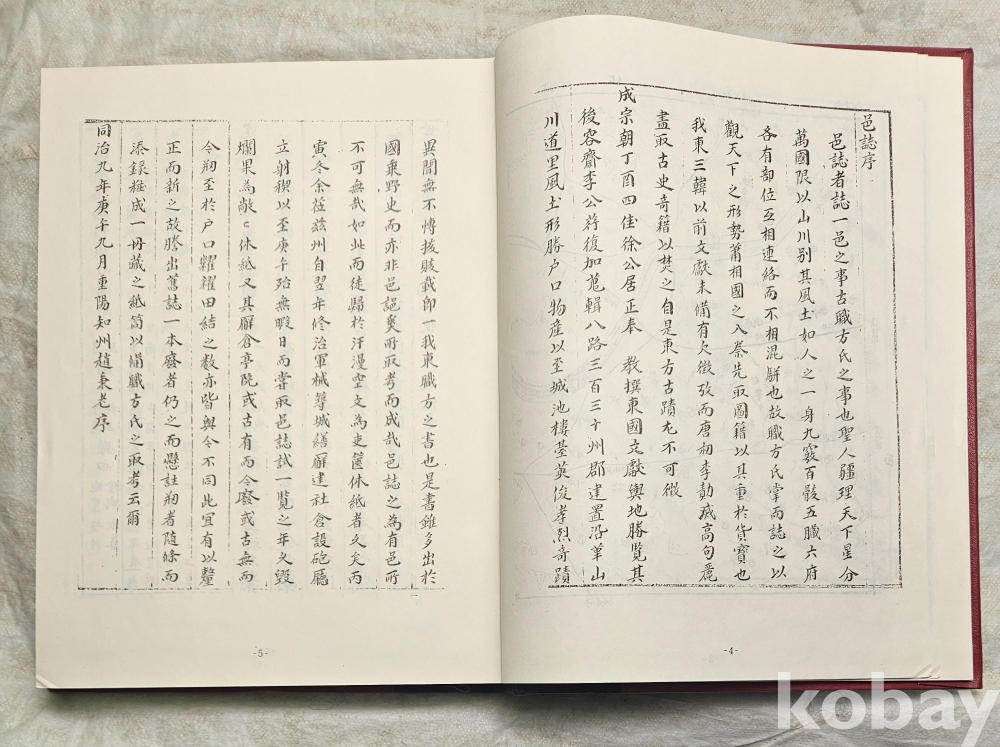 邑誌序
邑誌者誌一邑之事古職方氏之事也聖人疆理天下星分
萬國限以山川別其風土如人之一身九竅百骸五臟六府
各有部位互相連絡而不相混騈也故職方氏掌而誌之以
觀天下之形勢蕭相國之入秦先取圖籍以其重於貨寶也
我東三韓以前文獻未備有欠徵攷而唐初李勣殘高句麗
盡取古史奇籍以焚之自是東方古蹟尤不可徵
成宗朝丁酉四佳徐公居正奉 教撰東國文獻輿地勝覽其
後容齋李公荇復加蒐輯八路三百三十州郡建置沿革山
川道里風土形勝戶口物產以至城池樓臺英俊孝烈奇蹟
異聞無不博採賅載卽一我東職方之書也是書雖多出於
國乘野史而亦非邑誌奚所取考而成哉邑誌之為有邑所
不可無哉如此而徒歸於汗漫空文為吏篋休紙者久矣丙
寅冬余莅玆州自翌年修治軍械蕁城繕廨建社倉設砲廳
立射稧以至庚午殆無暇日而嘗取邑誌試一覽之年久毀
爛果為敞〻休紙又其廨倉亭院或古有而今廢或古無而
今刱至於戶口糶糴田結之數亦皆與今不同此宜有以釐
正而新之故謄出舊誌一本廢者仍之而懸註刱者隨條而
添錄粧成一冊藏之紙筒以備職方氏之取考云爾
同治九年庚午九月重陽知州趙秉老序
-5-
-4-
kobay